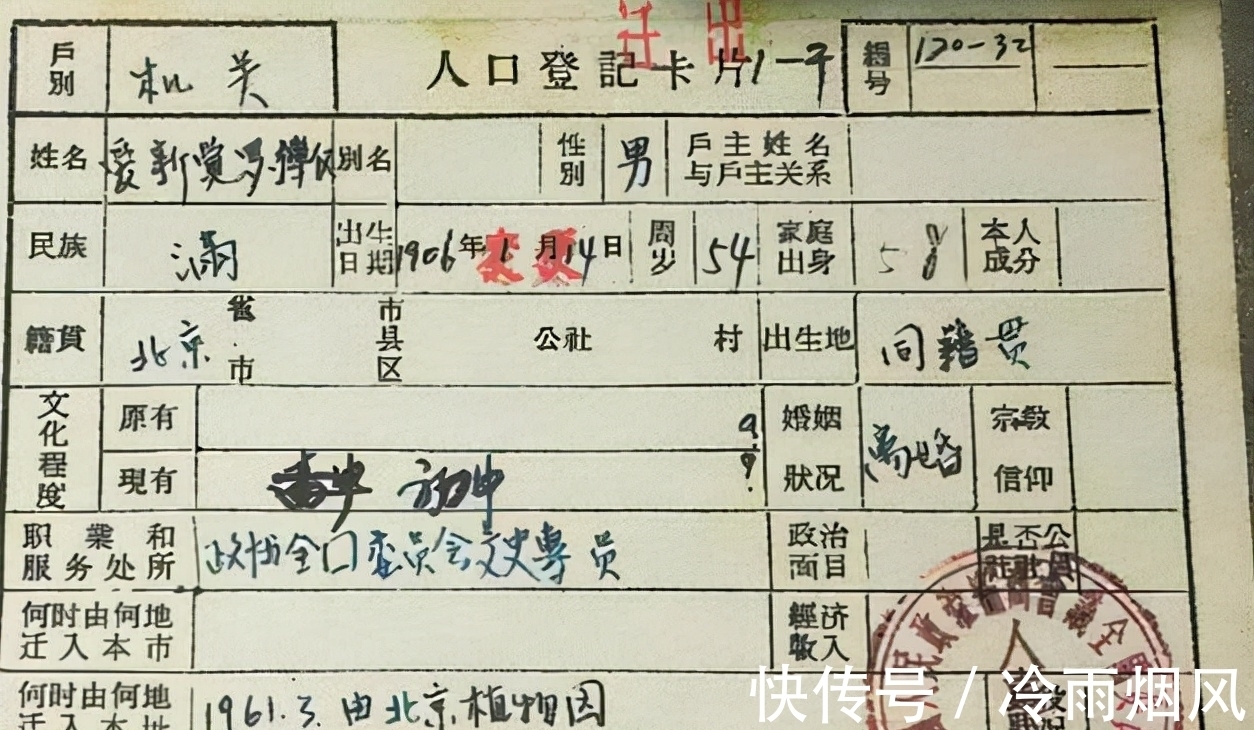 迁出
戶別 机关 人口登記卡片1-干 編号 120-32
姓名 爱新觉罗.溥仪 別名 性別 男 戶主姓名与戶主关系
民族 满 出生日期 1906年1月14日 周岁 54 家庭出身 58 本人成分
籍貫 北京 省市 市县区 公社 村 出生地 同籍贯
文化程度 原有 婚姻狀况 离婚 宗敎信仰
現有 初中
职業和服务处所 政协全口委员会文史專员 政治面目 是否公社社員
何时由何地迁入本市 經济收入
何时由何地迁入本址 1961.3.由北京植物园
快传号 / 冷雨烟风